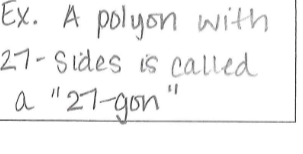 Ex. A polyon with
27-Sides is called
a "27-gon"